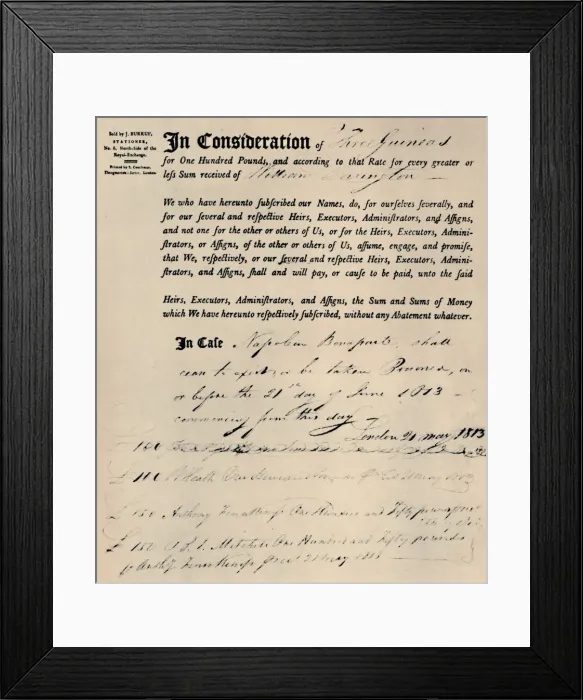 Sold by J. BURBUY,
STATIONER,
No. 8, North-Side of the
Royal-Exchange.
Printed by
London
In Conſideration of Three Guineas
for One Hundred Pounds, and according to that Rate for every greater or
leſs Sum received of William
We who have hereunto ſubſcribed our Names, do, for ourſelves ſeverally, and
for our ſeveral and reſpective Heirs, Executors, Adminiſtrators, and Aſſigns,
and not one for the other or others of Us, or for the Heirs, Executors, Admini-
ſtrators, or Aſſigns, of the other or others of Us, aſſume, engage, and promiſe,
that We, reſpectively, or our ſeveral and reſpective Heirs, Executors, Admini-
ſtrators, and Aſſigns, ſhall and will pay, or cauſe to be paid, unto the ſaid
Heirs, Executors, Adminiſtrators, and Aſſigns, the Sum and Sums of Money
which We have hereunto reſpectively ſubſcribed, without any Abatement whatever.
In Caſe Napoleon Bonaparte shall
cease to exist or be taken Prisoner, on
or before the 21st day of June 1813
commencing from this day
London 21 May 1813
100
£ 100 One Hundred 21 May
£ 150 Anthony One Hundred and Fifty pounds
£ 150 Mitchell One Hundred and Fifty pounds
21 May 1813